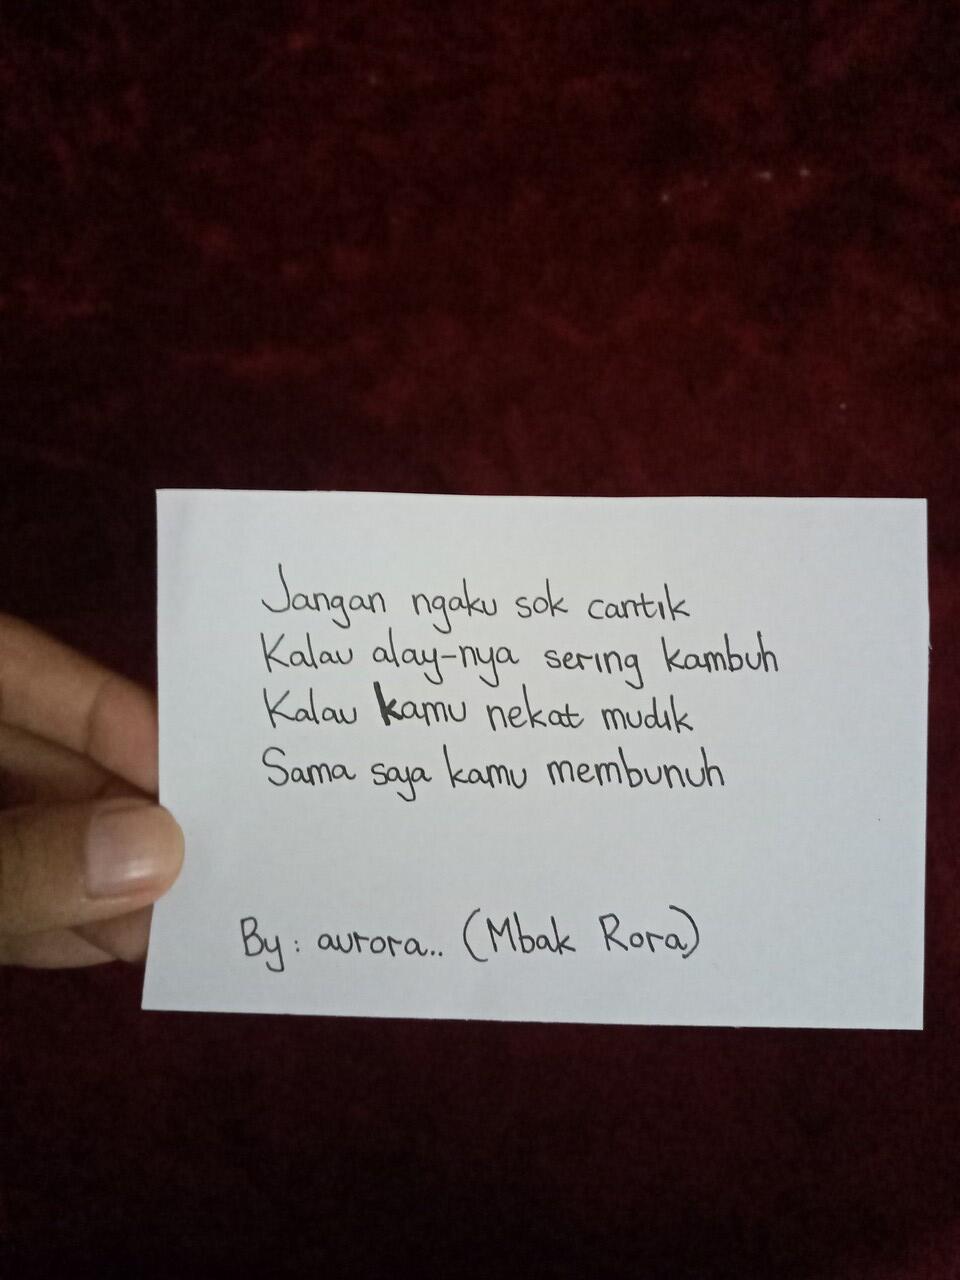 Jangan ngaku sok cantik
Kalau alay-nya sering kambuh
Kalau kamu nekat mudik
Sama saja kamu membunuh
By: aurora.. (Mbak Rora)